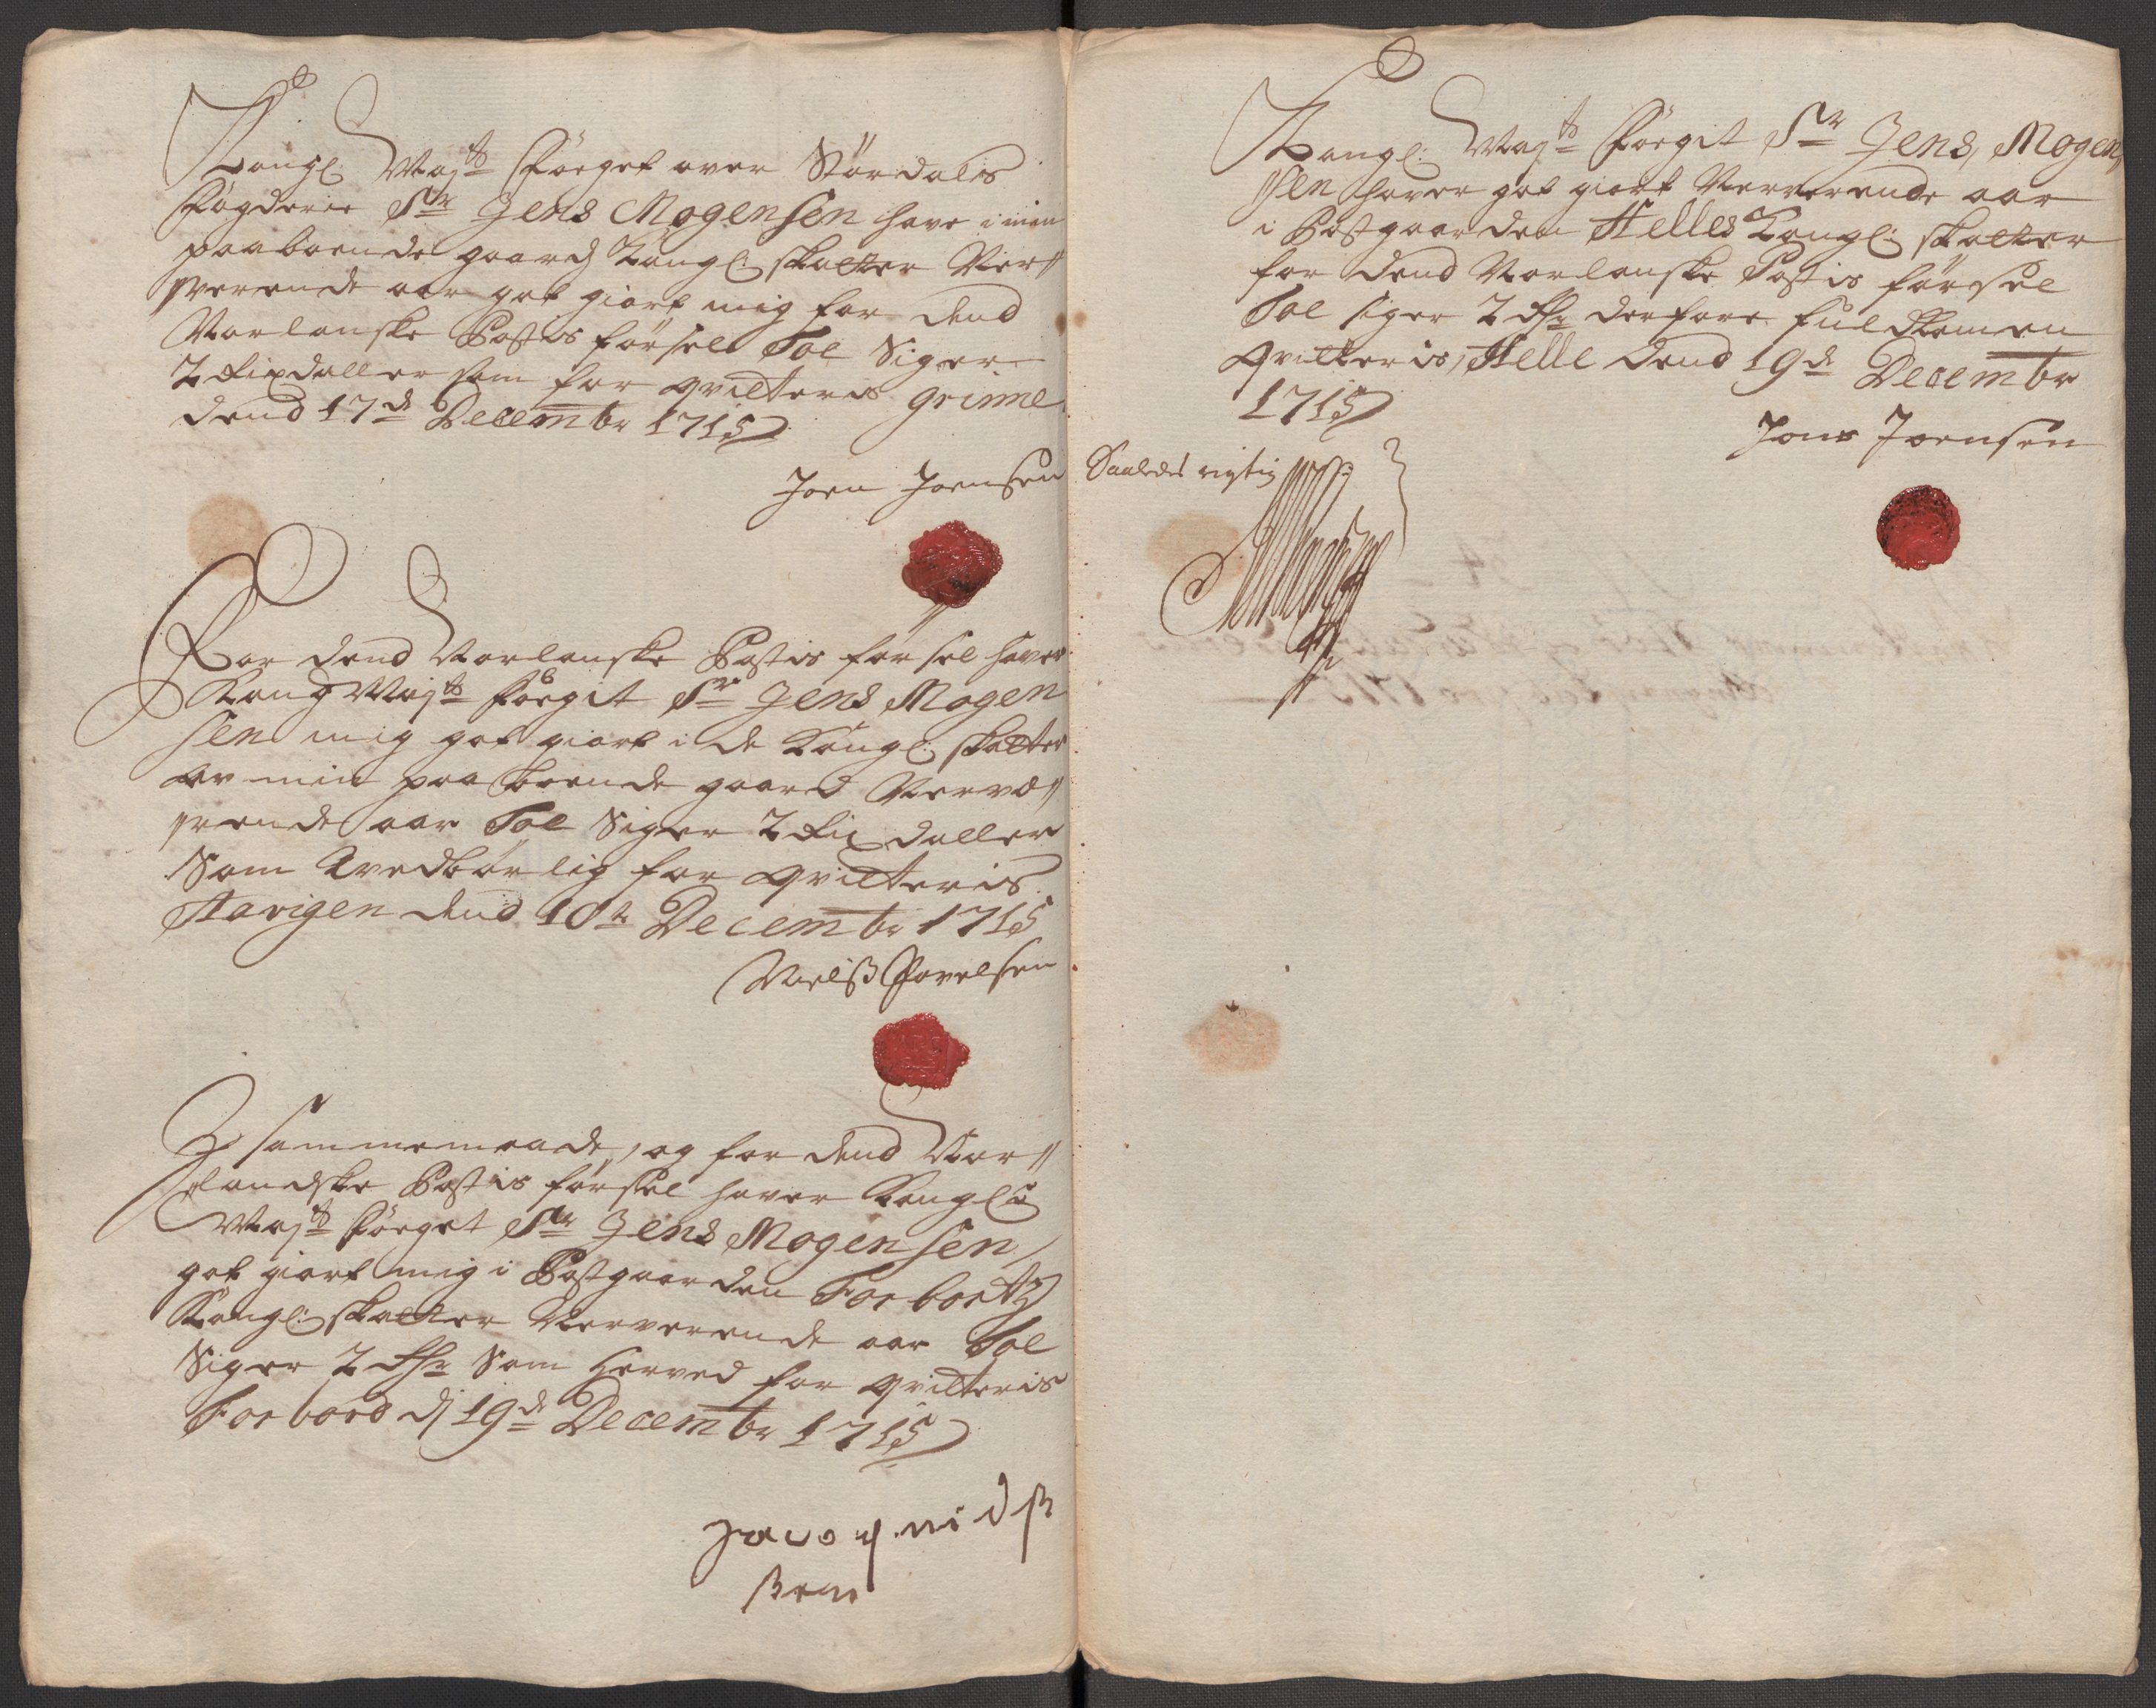 Kongl: Maj:ts Foeget over Størdalls
Fogderie Sr Jens Mogensen have i min
paaboende gaard Kongl: skatter Ner
værende aar got giort mig for dend
Norlanske Postis førsel Toe Siger
2 Rixdaller som for qvitteris Grimne
dend 17de Decembr 1715
Joen Joensen
For dend Norlanske Postis førsel haver
Kong Maj:ts Foegit Sr Jens Mogen
sen mig got giort i de Kongl: skatter
av min paa boende gaard Nervæ
rende aar Toe Siger 2 Rixdaller
Som tvedbørlig for qvitteris
Havigen dend 18de Decembr 1715
Nielß Povelsen
I sammemaade, og for dend Nor
landske Postis førsel haver Kongl:
Maj:ts Foeget Sr Jens Mogensen,
got giort mig i Postgaarden Forbortz
Kongl: skatter Nerverende aar Toe
Siger 2 Rdr Som herved for qvitteris
Forbord dj 19de Decembr 1715
Kongl: Maj:ts Foegit Sr Jens Mogen
sen haver got giort Nerverende aar
i Postgaarden Helles Kongl: skatter
for dend Norlanske Postis førsel
Toe siger 2 Rdr derfore fuldkomen
qvitteris, Helle dend 19de Decembr
1715
Jons Joensen
Saaledes rigtig